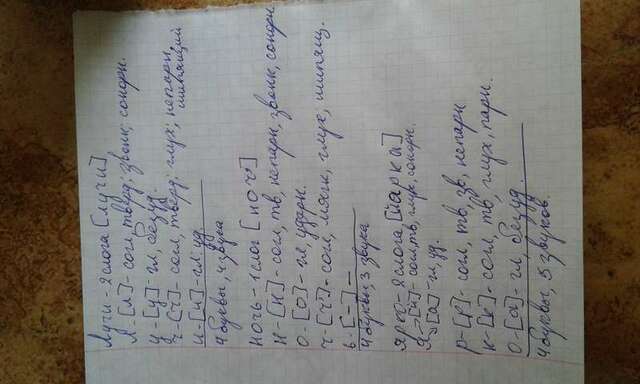 Лучи - 2 слога [лучи]
л - [л] - согл, тверд; звонк; сонорн.
у - [у] - гл, безуд.
ч - [ч] - согл, тверд; глух; непарн, шипящий
и - [и] - гл. уд.
4 буквы, 4 звука
ночь - 1 слог [ноч']
н - [н] - согл, тв, непарн, звонк, сонорн
о - [о] - гл, ударн.
ч - [ч'] - согл, мягк, глух, шипящ.
ь - [-] -
4 буквы, 3 звука
ярко - 2 слога, [йарка]
я → [й] - согл, тв, глух, сонорн.
→ [а] - гл, уд.
р - [р] - согл, тв, зв, непарн
к - [к] - согл, тв, глух, парн.
о - [а] - гл, безуд.
4 буквы, 5 звуков.